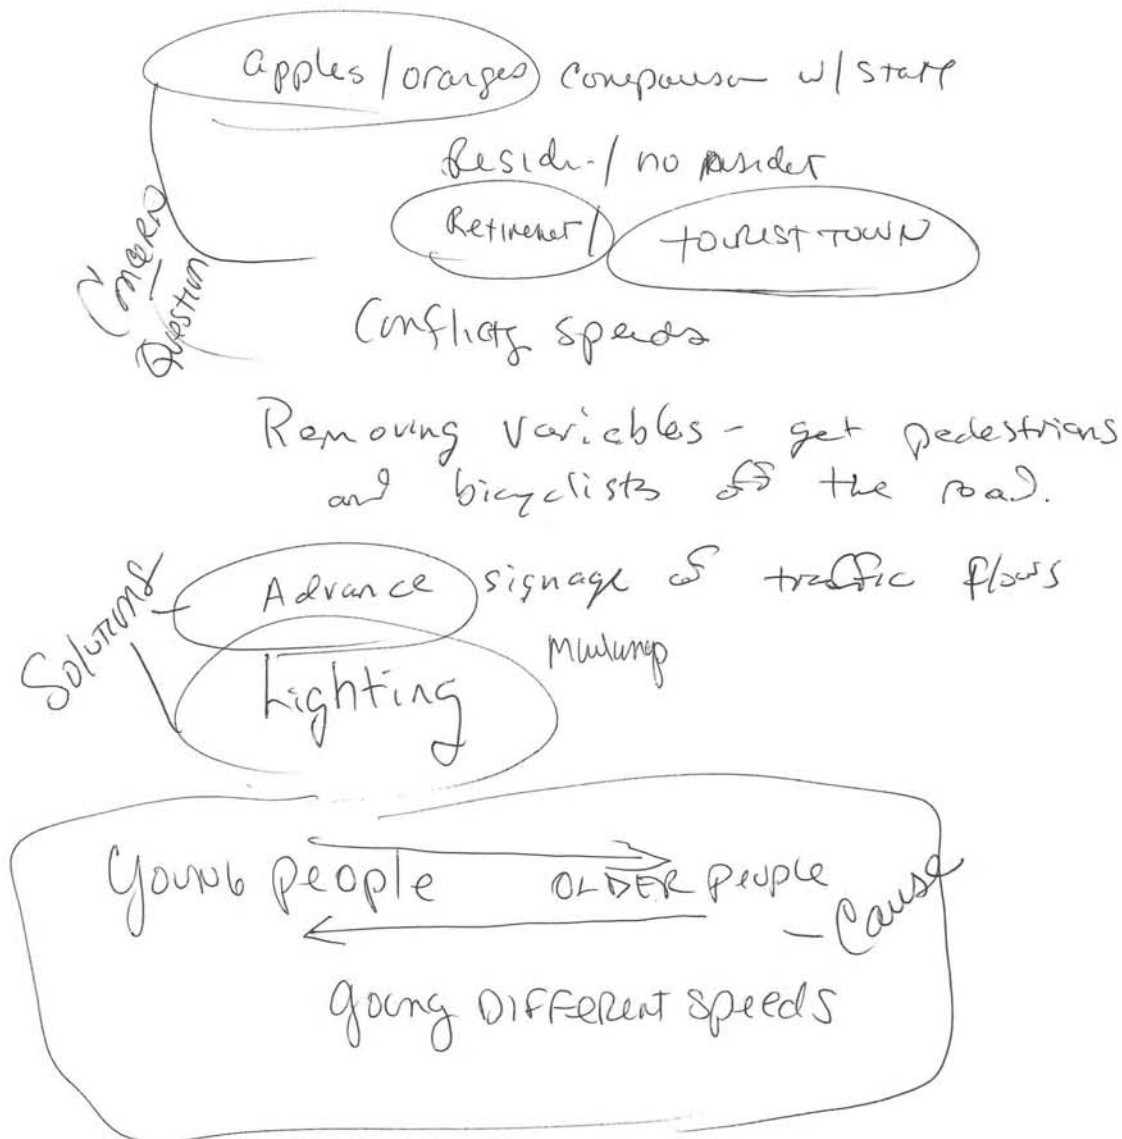 apples/oranges comparison w/ state
Resid-/ no resident
Retiremet/ TOURIST TOWN
CONCERN
QUESTION
Conflictg speeds
Removing variables - get pedestrians
and bicyclists off the road.
SOLUTIONS
Advance signage of traffic flows
Lighting
YOUNG PEOPLE OLDER PEOPLE
- Cause
going DIFFERENT SPEEDS